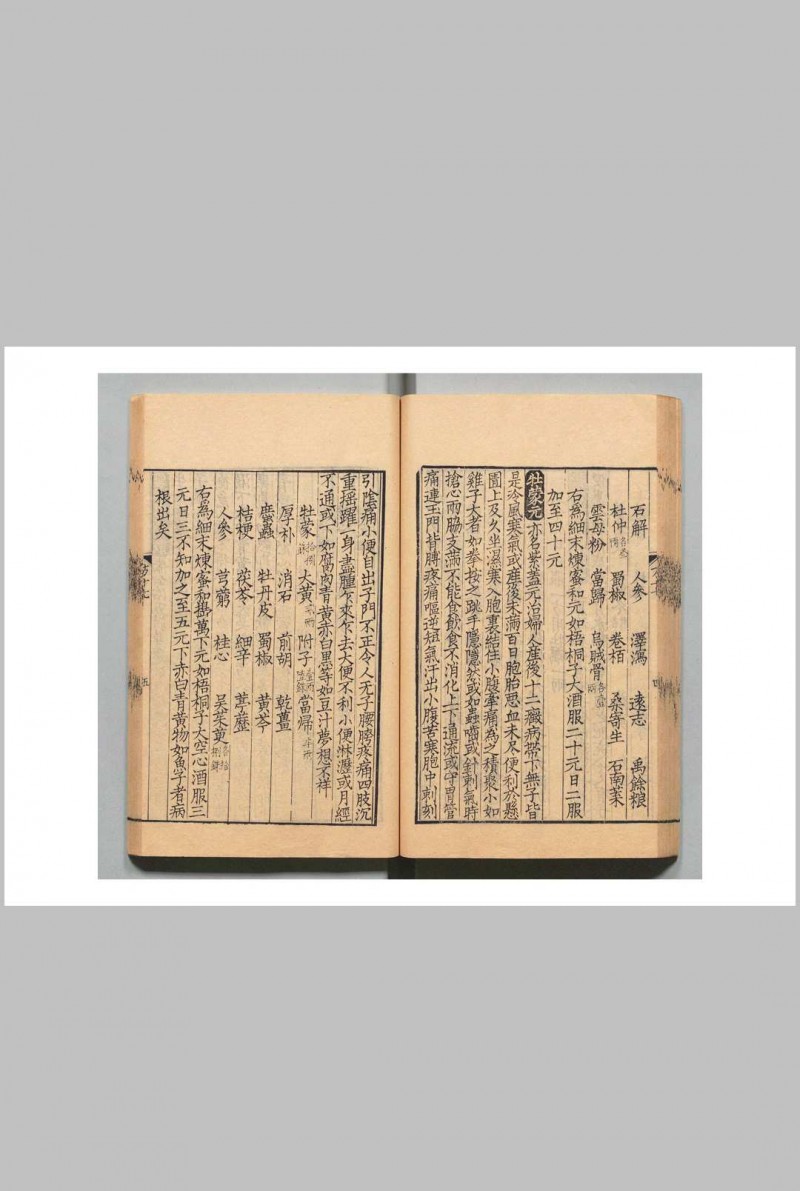 石斛 人參 澤瀉 遠志 禹餘粮
杜仲 蜀椒 卷栢 桑寄生 石南菜
雲母粉 當歸 烏賊骨
右為細末煉蜜和元如梧桐子大酒服二十元日二服
加至四十元
牡蒙元 亦名紫蓋元治婦人產後十二癥病帶下無子皆
是冷風寒氣或產後未滿百日胞胎惡血未尽便利於懸
圊上及久坐濕寒入胞裏結住小腹牽痛為之積聚小如
雞子大者如拳按之跳手隱隱然或如蟲嚙或針刺氣時
搶心兩脇支滿不能食飲食不消化上下通流或守胃管
痛連玉門背膊疼痛嘔逆短氣汗出小腹苦寒胞中刺刻
引陰痛小便自出子門不正令人无子腰胯疼痛四肢沉
重揺躍一身盡腫乍來乍去大便不利小便淋瀝或月經
不通或下如腐肉青黃赤白黑等如豆汁夢想不祥
牡蒙 大黃 附子 當歸
厚朴 消石 前胡 乾薑
䗪蟲 牡丹皮 蜀椒 黃芩
桔梗 茯苓 細辛 葶藶
人參 芎藭 桂心 吳茱萸
右為細末煉蜜和擣萬下元如梧桐子大空心酒服三
元日三不知加之至五元下赤白青黃物如魚子者病
根出矣
四
五